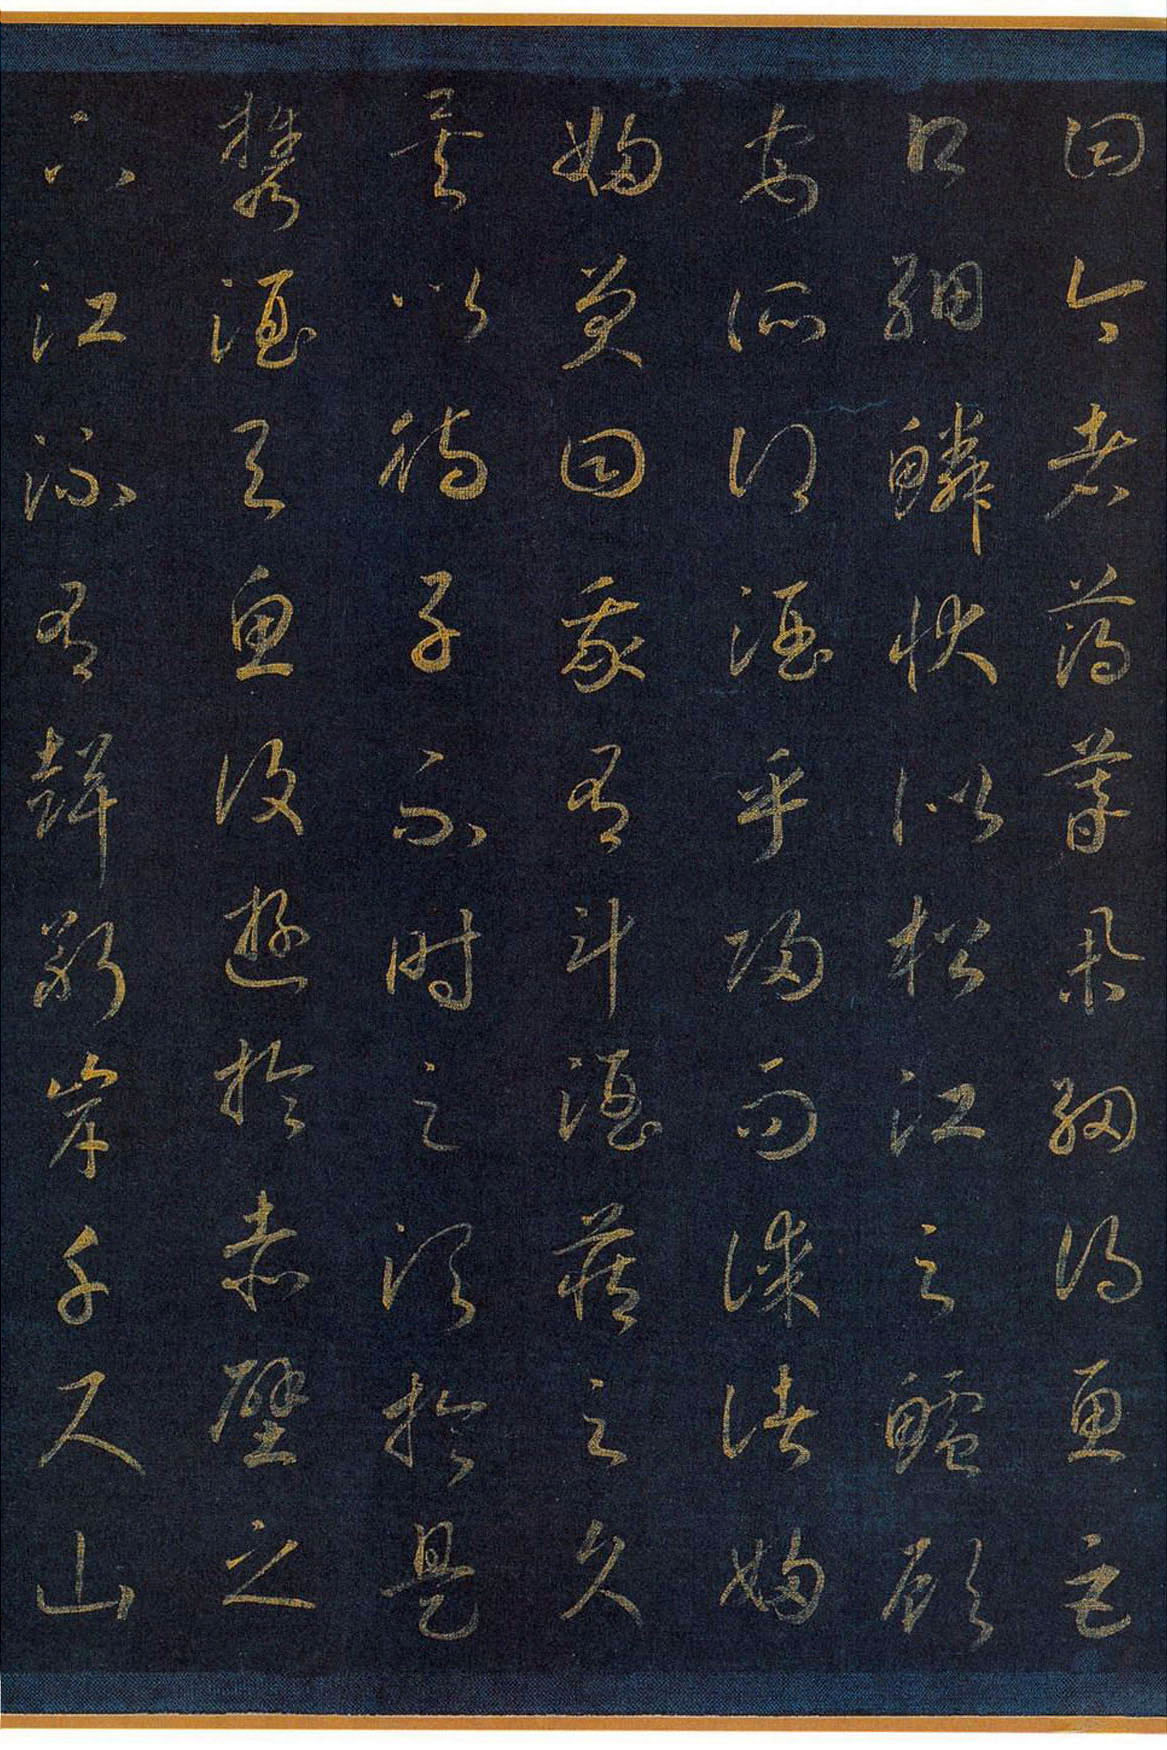 曰今者薄暮舉網得魚巨
口細鱗狀似松江之鱸顧
安所得酒乎歸而謀諸婦
婦曰我有斗酒藏之久
矣以待子不時之須於是
攜酒與魚復遊於赤壁之
下江流有聲斷岸千尺山